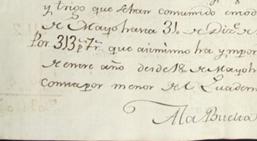 y trigo que se han consumido en od
de Mayo hasta 31 de Diz.e
Por 313 p.s 7 r.s que asimismo ha ympor
de enre año desde 18 de Mayo h
consta por menor del Quadern
A la Buelta